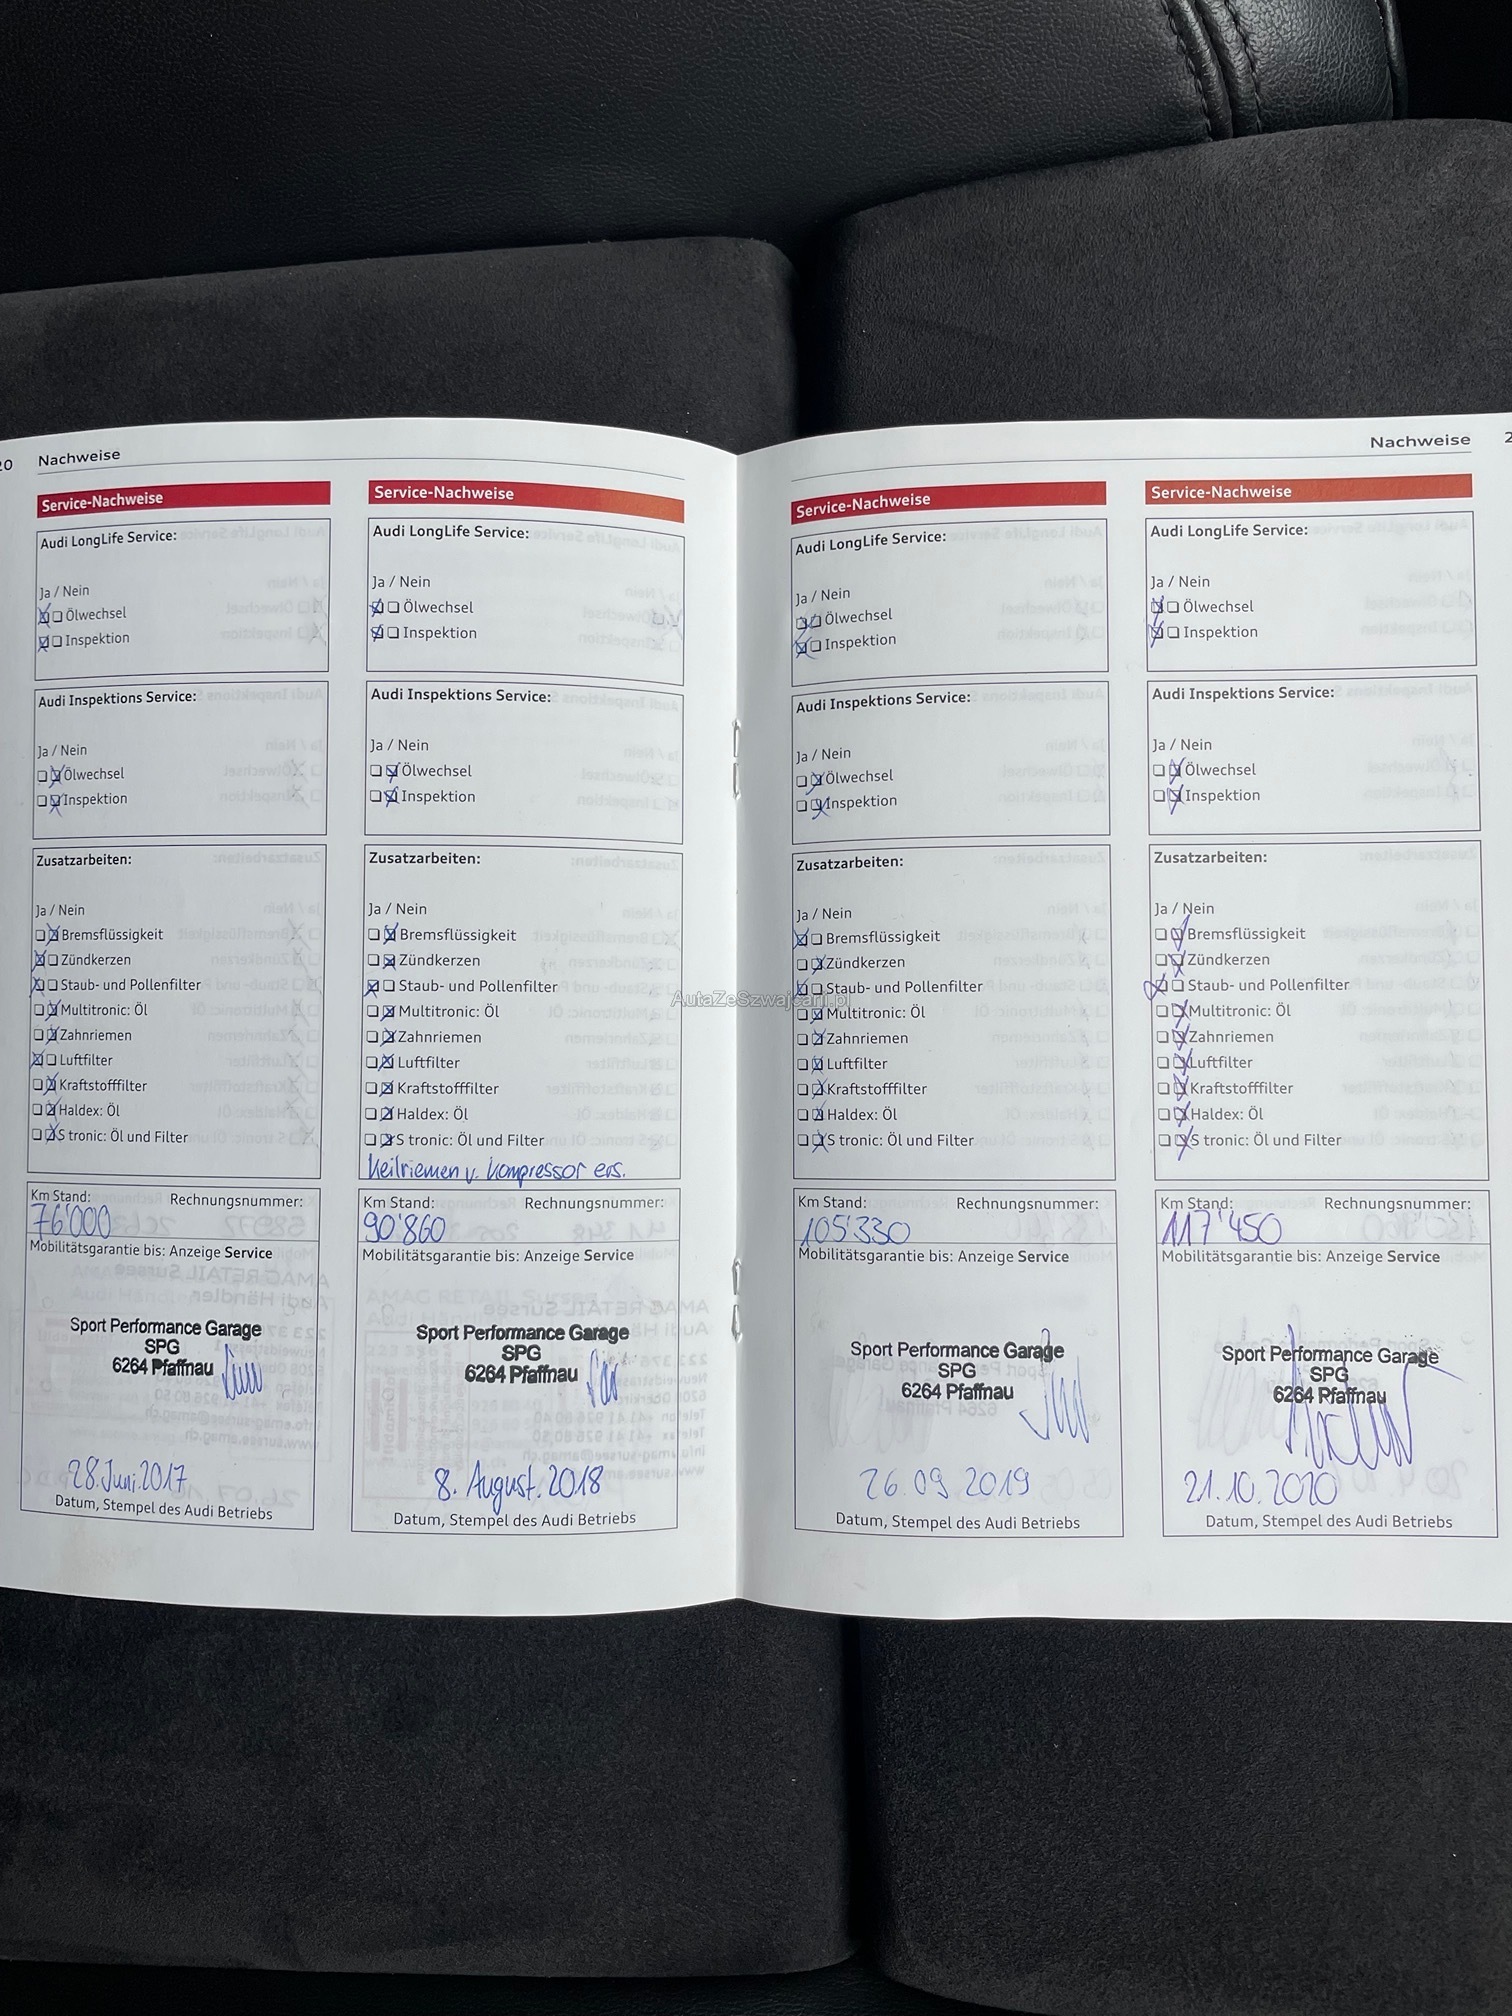 20 Nachweise
Service-Nachweise
Audi LongLife Service:
Ja / Nein
Ölwechsel
Inspektion
Audi Inspektions Service:
Ja / Nein
Ölwechsel
Inspektion
Zusatzarbeiten:
Ja / Nein
Bremsflüssigkeit
Zündkerzen
Staub- und Pollenfilter
Multitronic: Öl
Zahnriemen
Luftfilter
Kraftstofffilter
Haldex: Öl
S tronic: Öl und Filter
Km Stand: Rechnungsnummer:
76'000
Mobilitätsgarantie bis: Anzeige Service
Sport Performance Garage
SPG
6264 Pfaffnau
28. Juni. 2017
Datum, Stempel des Audi Betriebs
Service-Nachweise
Audi LongLife Service:
Ja / Nein
Ölwechsel
Inspektion
Audi Inspektions Service:
Ja / Nein
Ölwechsel
Inspektion
Zusatzarbeiten:
Ja / Nein
Bremsflüssigkeit
Zündkerzen
Staub- und Pollenfilter
Multitronic: Öl
Zahnriemen
Luftfilter
Kraftstofffilter
Haldex: Öl
S tronic: Öl und Filter
Keilriemen v. Kompressor ers.
Km Stand: Rechnungsnummer:
90'860
Mobilitätsgarantie bis: Anzeige Service
Sport Performance Garage
SPG
6264 Pfaffnau
8. August. 2018
Datum, Stempel des Audi Betriebs
Nachweise
Service-Nachweise
Audi LongLife Service:
Ja / Nein
Ölwechsel
Inspektion
Audi Inspektions Service:
Ja / Nein
Ölwechsel
Inspektion
Zusatzarbeiten:
Ja / Nein
Bremsflüssigkeit
Zündkerzen
Staub- und Pollenfilter
Multitronic: Öl
Zahnriemen
Luftfilter
Kraftstofffilter
Haldex: Öl
S tronic: Öl und Filter
Km Stand: Rechnungsnummer:
105'330
Mobilitätsgarantie bis: Anzeige Service
Sport Performance Garage
SPG
6264 Pfaffnau
26.09 2019
Datum, Stempel des Audi Betriebs
Service-Nachweise
Audi LongLife Service:
Ja / Nein
Ölwechsel
Inspektion
Audi Inspektions Service:
Ja / Nein
Ölwechsel
Inspektion
Zusatzarbeiten:
Ja / Nein
Bremsflüssigkeit
Zündkerzen
Staub- und Pollenfilter
Multitronic: Öl
Zahnriemen
Luftfilter
Kraftstofffilter
Haldex: Öl
S tronic: Öl und Filter
Km Stand: Rechnungsnummer:
117'450
Mobilitätsgarantie bis: Anzeige Service
Sport Performance Garage
SPG
6264 Pfaffnau
21.10.2020
Datum, Stempel des Audi Betriebs
AutaZeSzwajcarii.pl